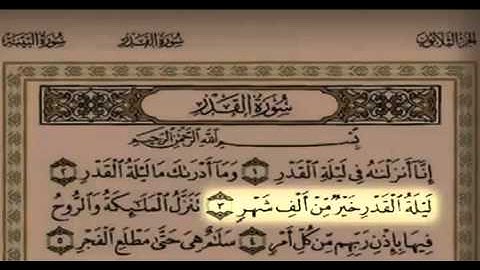 الجزء الثلاثون سورة القدر سورة البينة
سُورَةُ الْقَدْرِ
بِسْمِ اللَّهِ الرَّحْمَٰنِ الرَّحِيمِ
إِنَّا أَنزَلْنَاهُ فِي لَيْلَةِ الْقَدْرِ ١ وَمَا أَدْرَاكَ مَا لَيْلَةُ الْقَدْرِ ٢
لَيْلَةُ الْقَدْرِ خَيْرٌ مِّنْ أَلْفِ شَهْرٍ ٣ تَنَزَّلُ الْمَلَائِكَةُ وَالرُّوحُ
فِيهَا بِإِذْنِ رَبِّهِم مِّن كُلِّ أَمْرٍ ٤ سَلَامٌ هِيَ حَتَّىٰ مَطْلَعِ الْفَجْرِ ٥